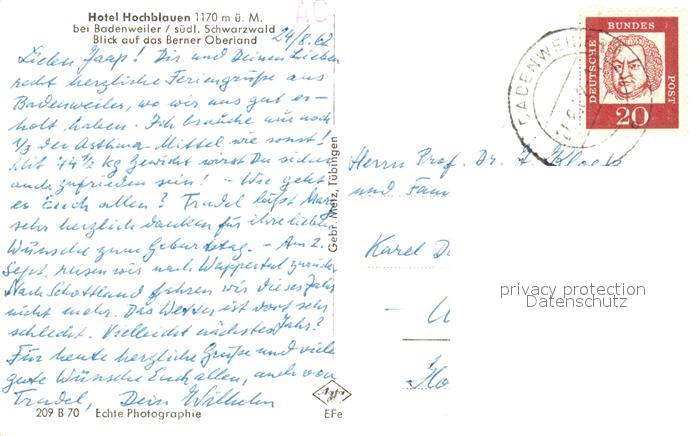 Hotel Hochblauen 1170 m ü. M.
bei Badenweiler / südl. Schwarzwald
Blick auf das Berner Oberland
AC
24/8.62
Lieber Jaap! Dir und Deinen Lieben
recht herzliche Feriengrüße aus
Badenweiler, wo wir uns gut er-
holt haben. Ich brauche nur noch
1/3 der Asthma-Mittel wie sonst!
Mit 74 1/2 kg Gewicht wirst Du sicher
auch zufrieden sein! - Wie geht
es Euch allen? Trudel läßt
sehr herzlich danken für ihre lieben
Wünsche zum Geburtstag. - Am 2.
Sept. reisen wir nach Wuppertal zurück.
Nach Schottland fahren wir dieses Jahr
nicht mehr. Das Wetter ist dort sehr
schlecht. Vielleicht nächstes Jahr?
Für heute herzliche Grüße und viele
gute Wünsche Euch allen, auch von
Trudel, Dein Wilhelm
209 B 70 Echte Photographie
Gebr. Metz, Tübingen
Agfa
EFe
BADENWEILER
DEUTSCHE BUNDESPOST
20
Herrn Prof. Dr.
und Fam
Karel
privacy protection
Datenschutz